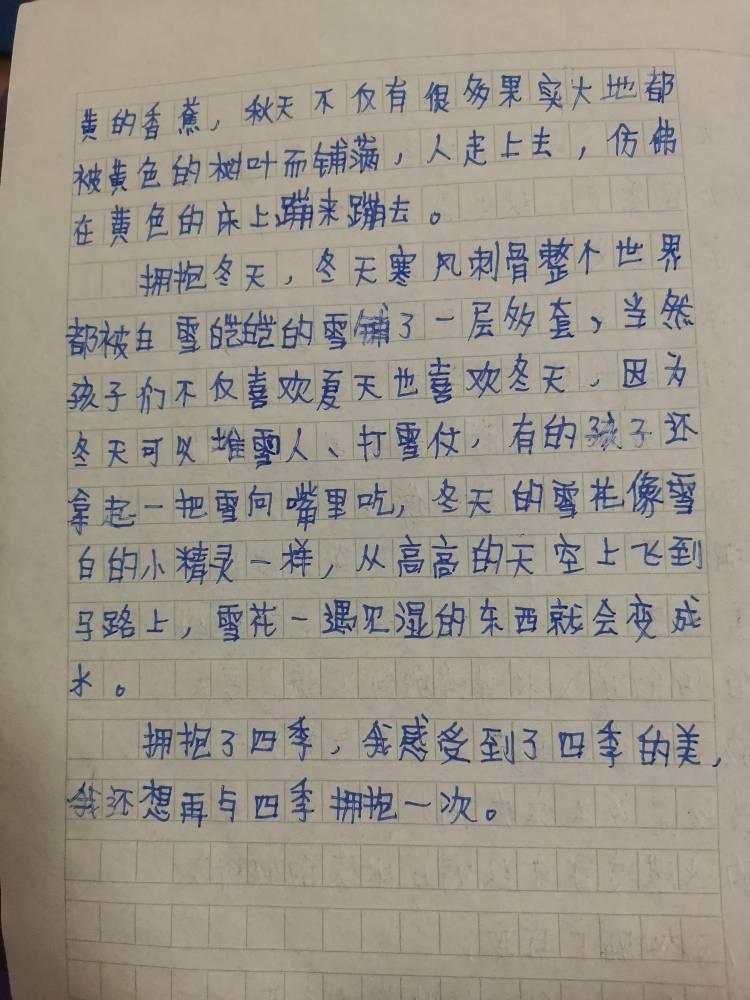 黄的香蕉，秋天不仅有很多果实大地都
被黄色的树叶而铺满，人走上去，仿佛
在黄色的床上蹦来蹦去。
拥抱冬天，冬天寒风刺骨整个世界
都被白雪皑皑的雪铺了一层外套，当然
孩子们不仅喜欢夏天也喜欢冬天，因为
冬天可以堆雪人、打雪仗，有的孩子还
拿起一把雪向嘴里吃，冬天的雪花像雪
白的小精灵一样，从高高的天空上飞到
马路上，雪花一遇见湿的东西就会变成
水。
拥抱了四季，我感受到了四季的美，
我还想再与四季拥抱一次。